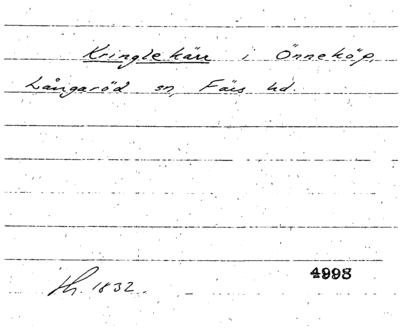 Kringlekärr i Önneköp,
Långaröd sn, Färs hd.
4998
Th. 1832.